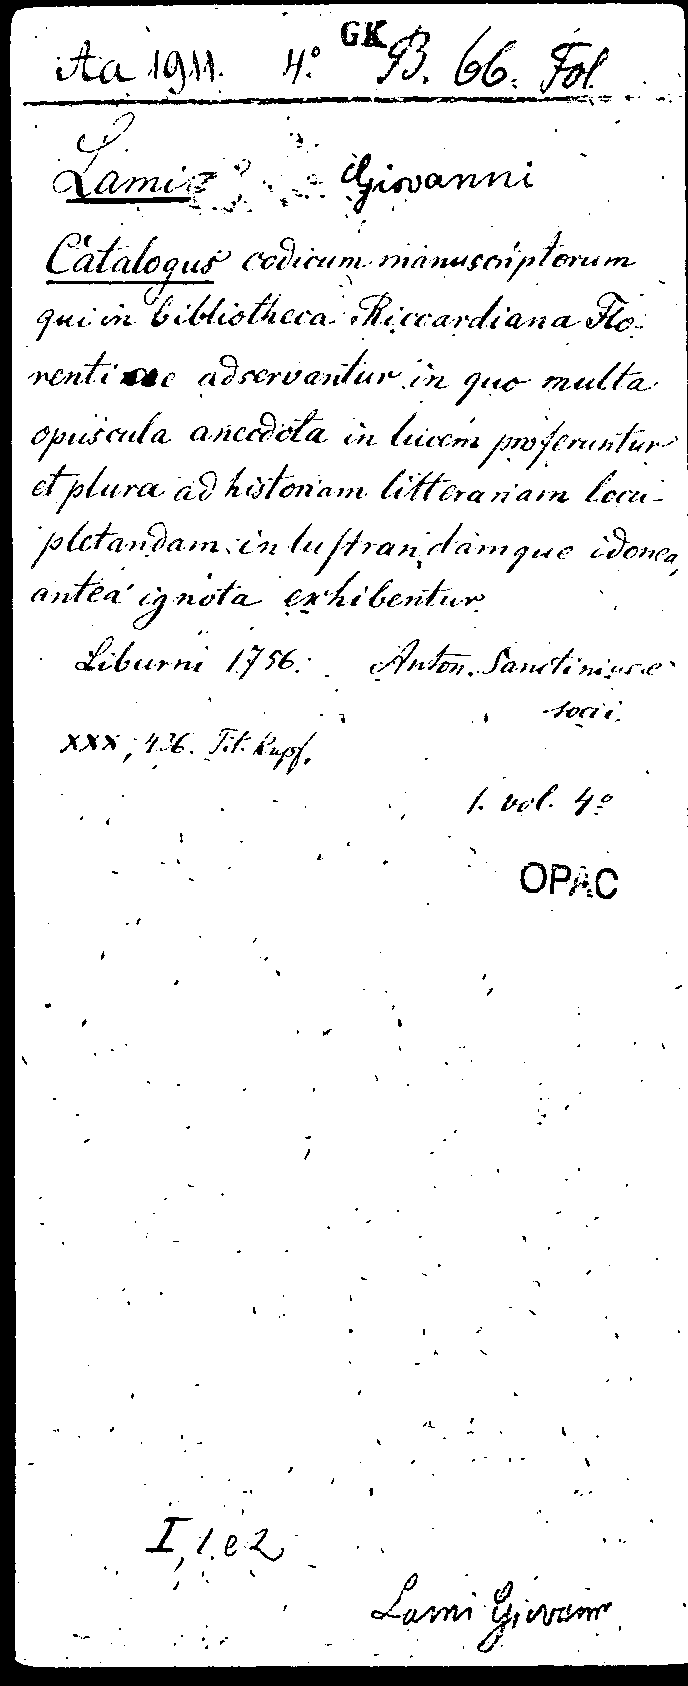 Aa 1911. 4.° GK B. 66. Fol.
Lami Giovanni
Catalogus codicum manuscriptorum
qui in bibliotheca Riccardiana Flo-
rentiae adservantur in quo multa
opuscula anecdota in lucem proferuntur
et plura ad historiam litterariam locu-
pletandam inlustrandamque idonea,
antea ignota exhibentur
Liburni 1756. Anton. Sanctinius e
socii.
XXX, 436. Tit. Kupf.
1. vol. 4°
OPAC
I, 1. e 2
Lami Giovanni